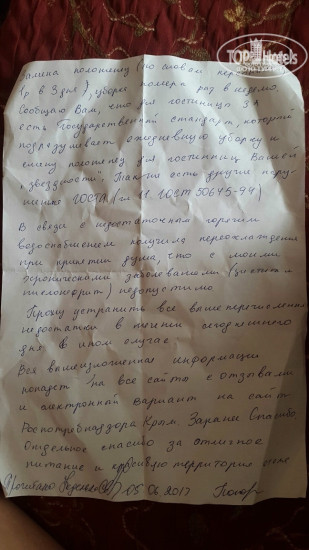 TopHotels
Замена полотенец (по словам гор.
(р. в 3 дня), уборка номера раз в неделю.
Сообщаю Вам, что для гостиниц 3*
есть Государственный стандарт, который
подразумевает ежедневную уборку и
смену полотенец для гостиниц Вашей
"звездности". Также есть другие нару-
шения ГОСТа (п 11. ГОСТ 50645-94)
В связи с недостаточным горячим
водоснабжением получила переохлаждение
при принятии душа, что с моими
хроническими заболеваниями (цистит и
пиелонефрит) недопустимо.
Прошу устранить все выше перечисленные
недостатки в течении сегодняшнего
дня. В ином случае
Вся вышеизложенная информация
попадет на все сайты с отзывами
и электронный вариант на сайт
Роспотребнадзора Крым. Заранее Спасибо.
Отдельное спасибо за отличное
питание и красивую территорию отеля.
05.06.2017